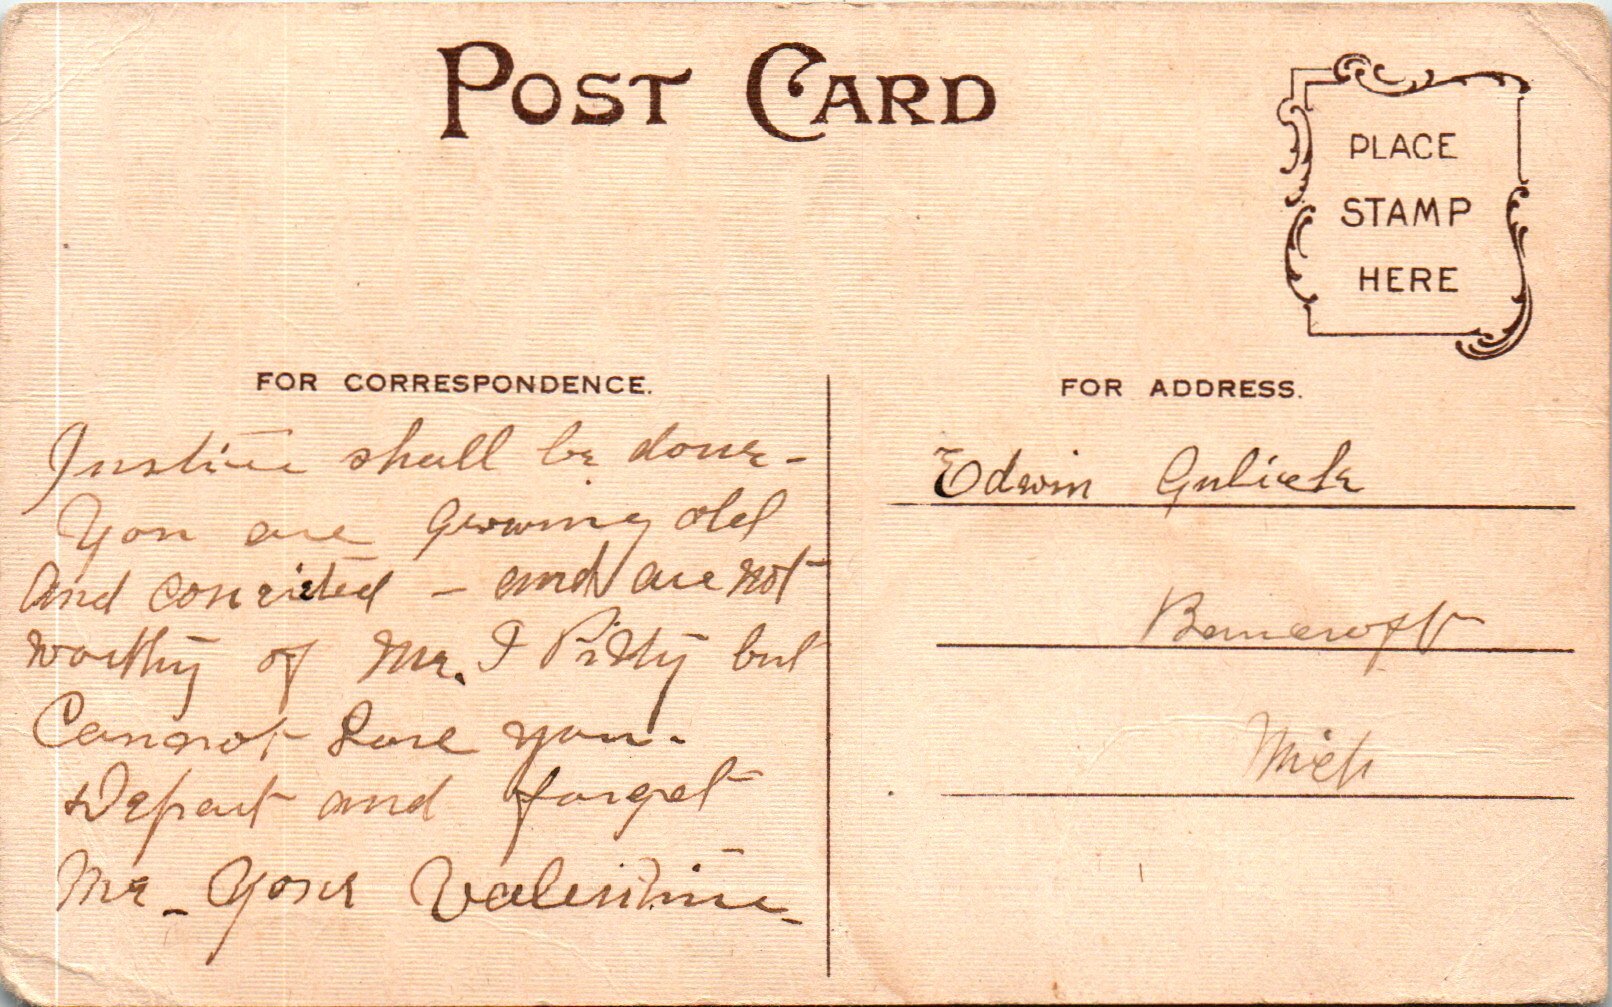 POST CARD
PLACE
STAMP
HERE
FOR CORRESPONDENCE.
Justice shall be done -
You are growing old
and conceited - and are not
worthy of Me. I Pitty but
Cannot Love you.
Depart and forget
Me - Your Valentine -
FOR ADDRESS.
Edwin Gulick
Bancroft
Mich